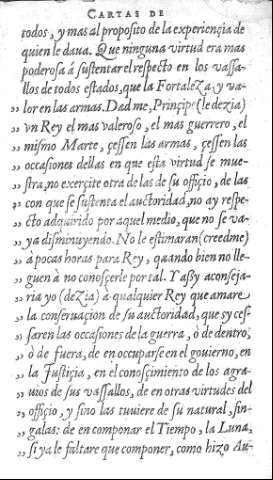 CARTAS DE
todos, y mas al proposito de la experiençia de
quien le daua. Que ninguna virtud era mas
poderosa á sustentar el respecto en los vassa-
llos de todos estados, que la Fortaleza, y va-
,, lor en las armas. Dad me, Prinçipe (le dezia)
,, vn Rey el mas valeroso, el mas guerrero, el
,, mismo Marte, çessen las armas, çessen las
,, occasiones dellas en que esta virtud se mue-
,, stra, no exerçite otra de las de su offiçio, de las
,, con que se sustenta el auctoridad, no ay respe-
,, cto adquirido por aquel medio, que no se va-
,, ya disminuyendo. No le estimaran (creedme)
,, à pocas horas para Rey, quando bien no lle-
,, guen à no conosçerle por tal. Y assy aconseja-
,, ria yo (dezia) à qualquier Rey que amare
,, la conseruaçion de su auctoridad, que sy ces-
,, saren las occasiones de la guerra, ò de dentro,
,, ò de fuera, de en occuparse en el gouierno, en
,, la Justiçia, en el conosçimiento de los agra-
,, uios de sus vassallos, de en otras virtudes del
,, offiçio, y sino las tuuiere de su natural, fin-
,, galas: de en componar el Tiempo, la Luna,
,, si ya le faltare que componer, como hizo Au-